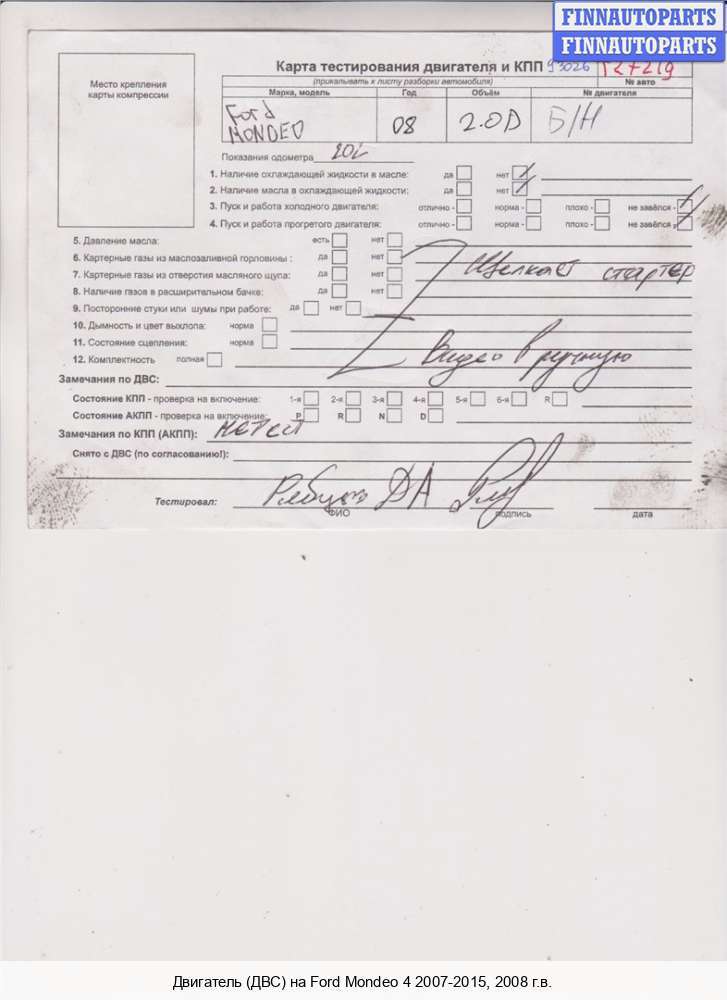 FINNAUTOPARTS
FINNAUTOPARTS
Карта тестирования двигателя и КПП 93026
(прикалывать к листу разборки автомобиля) № авто
Место крепления
карты компрессии
Марка, модель Год Объём № двигателя
Ford
MONDEO 08 2.0D Б/Н
Показания одометра 202
1. Наличие охлаждающей жидкости в масле: да нет
2. Наличие масла в охлаждающей жидкости: да нет
3. Пуск и работа холодного двигателя: отлично - норма - плохо - не завёлся -
4. Пуск и работа прогретого двигателя: отлично - норма - плохо - не завёлся -
5. Давление масла: есть нет
6. Картерные газы из маслозаливной горловины : да нет
7. Картерные газы из отверстия масляного щупа: да нет
Щелкает стартер
8. Наличие газов в расширительном бачке: да нет
9. Посторонние стуки или шумы при работе: да нет
10. Дымность и цвет выхлопа: норма
11. Состояние сцепления: норма
12. Комплектность полная
Видео вручную
Замечания по ДВС:
Состояние КПП - проверка на включение: 1-я 2-я 3-я 4-я 5-я 6-я R
Состояние АКПП - проверка на включение: P R N D
Замечания по КПП (АКПП):
Снято с ДВС (по согласованию!):
Тестировал: ДА
ФИО подпись дата
Двигатель (ДВС) на Ford Mondeo 4 2007-2015, 2008 г.в.